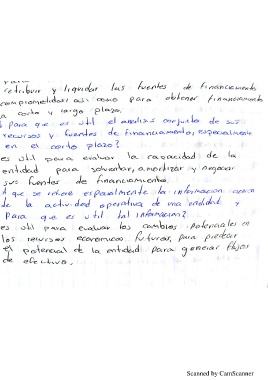 retribuir y liquidar las fuentes de financiamiento
comprometidas asi como para obtener financiamiento
a corto y largo plazo.
Para que es util el analisis conjunto de sus
recursos y fuentes de financiamiento, especialmente
en el corto plazo?
es util para evaluar la capacidad de la
entidad para solventar, amortizar y negociar
sus fuentes de financiamiento.
A que se refiere especialmente la informacion acerca
de la actividad operativa de una entidad y
Para que es util tal informacion?
es util para evaluar los cambios potenciales en
los recursos economicos futuros, para predecir
el potencial de la entidad para generar flujos
de efectivo.
Scanned by CamScanner